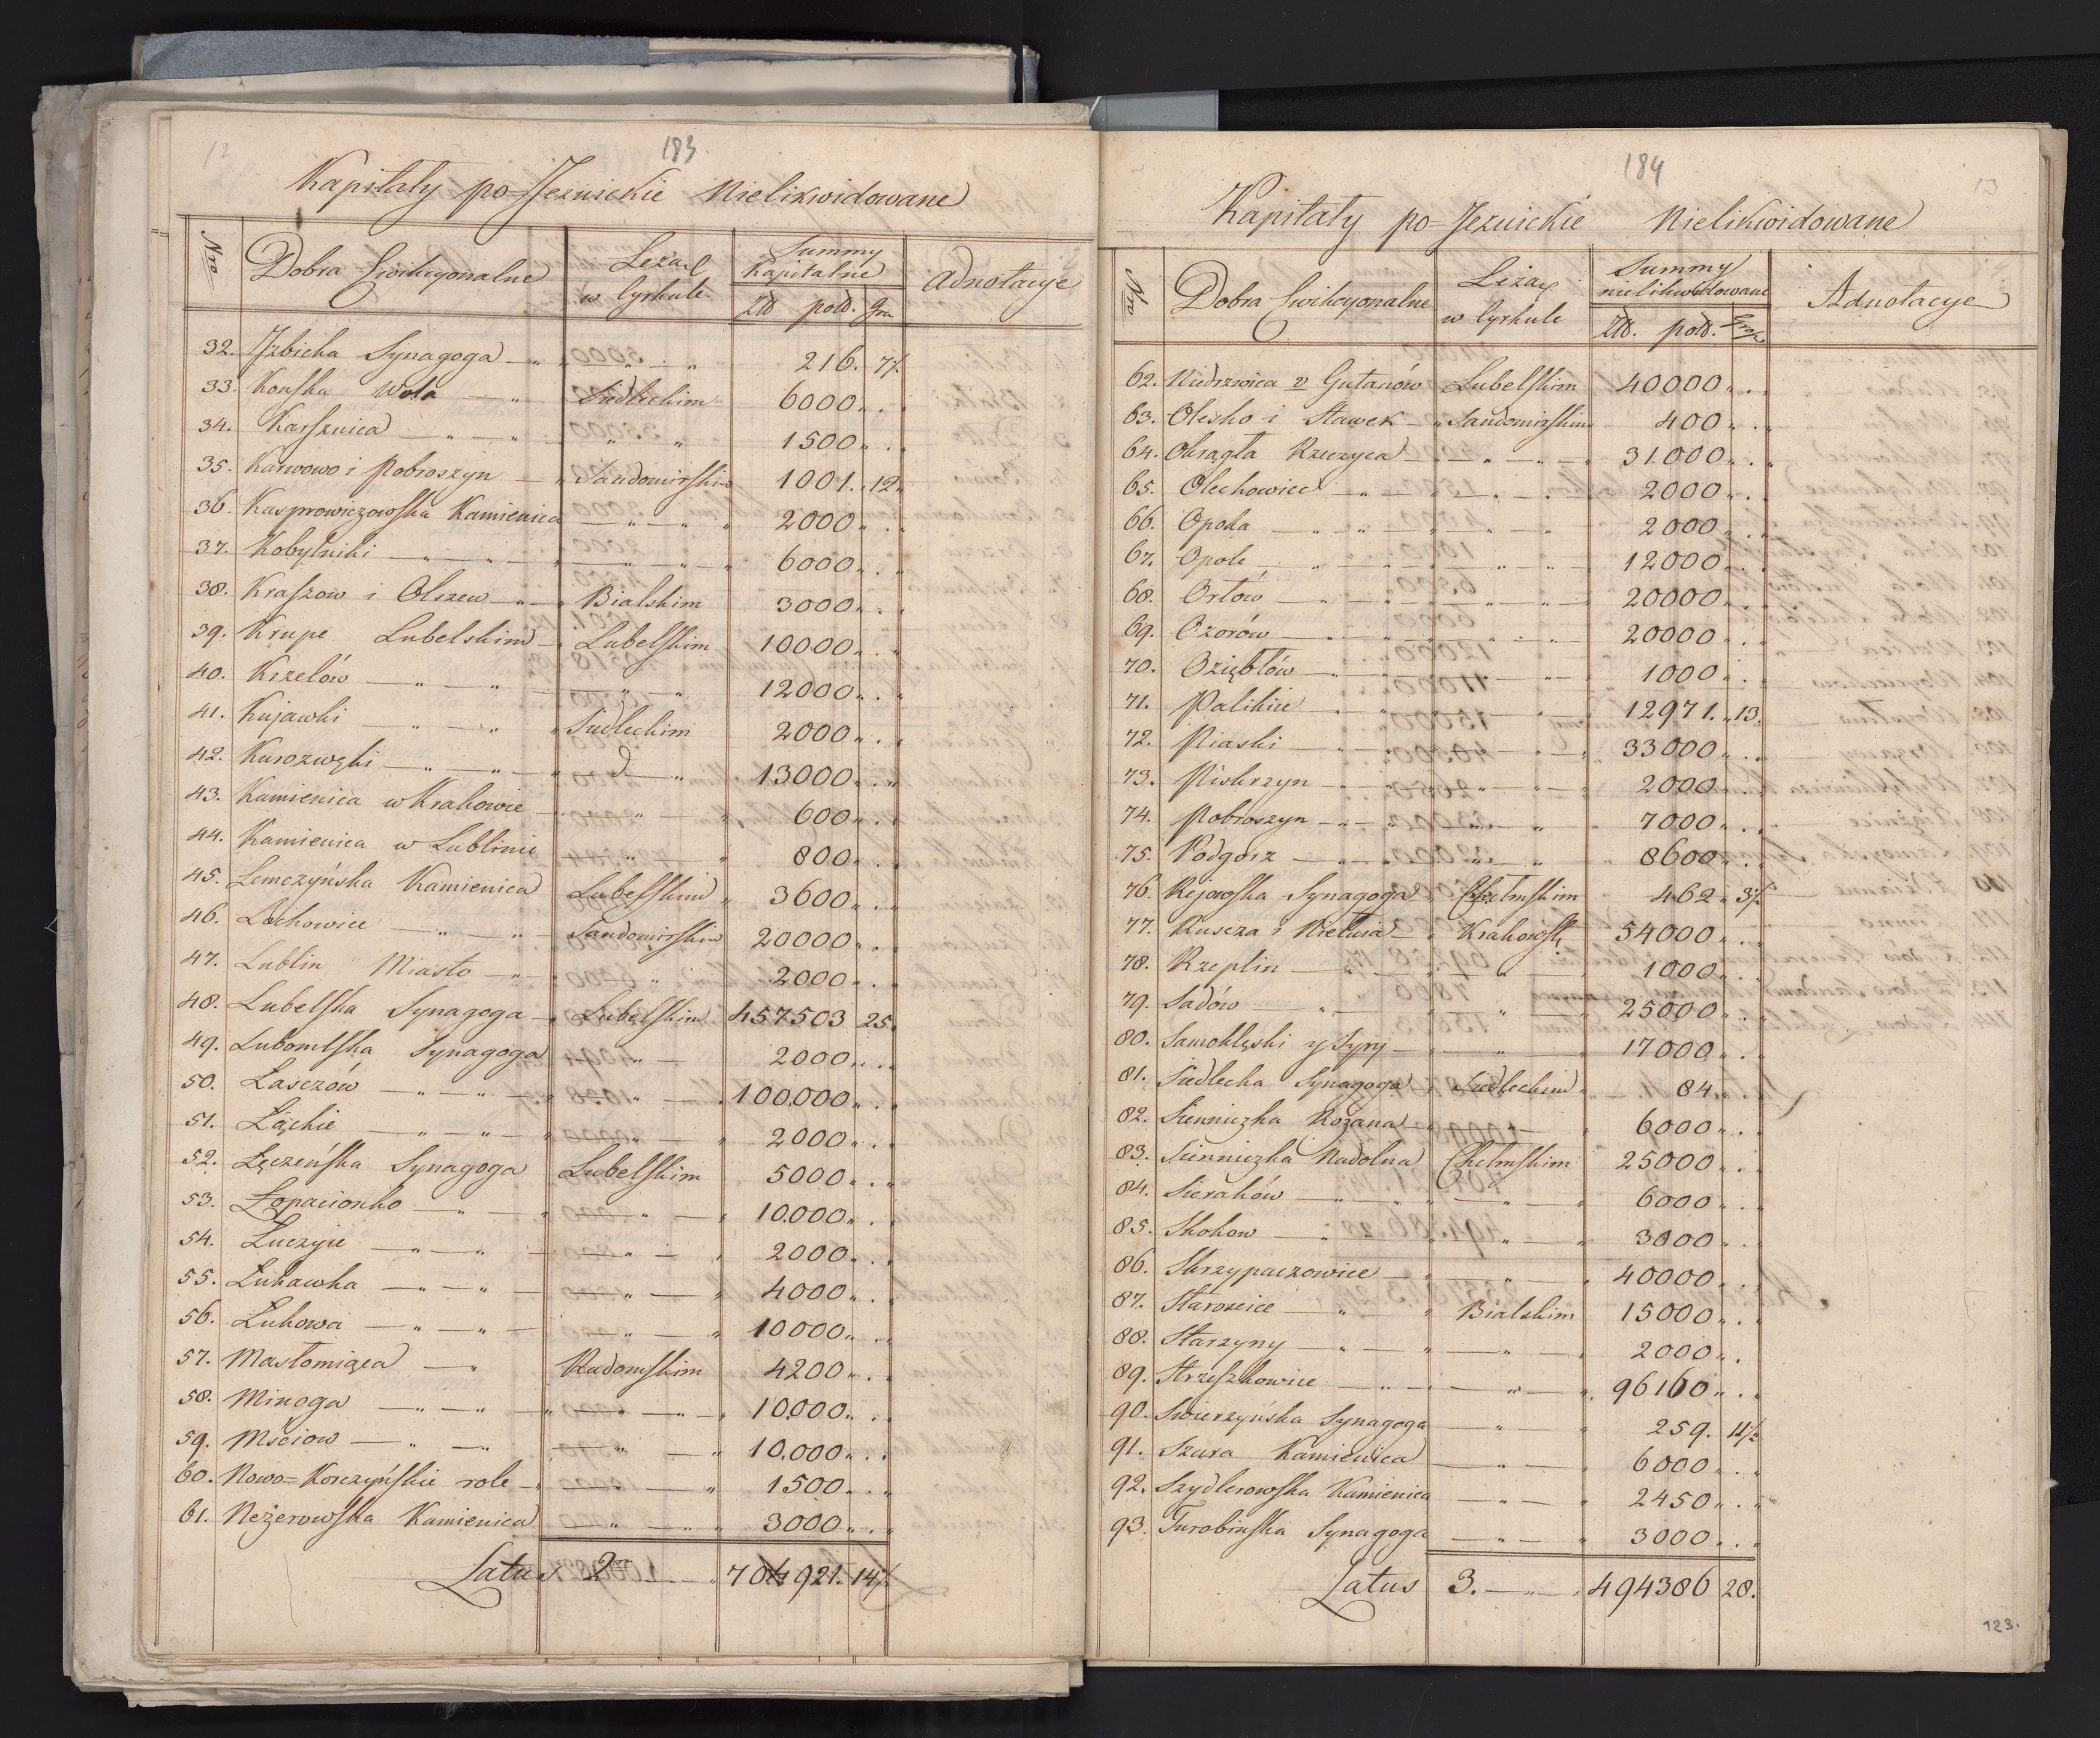 12
183.
Kapitały po-Jezuickie Nielikwidowane
Nro
Dobra Ewikcyonalne
Leżą
w Cyrkule
Summy
Kapitalne
Złł pold. Gra
Adnotacyje
32. Izbicka Synagoga — " " — " 216. 7½
33. Końska Wola — " Siedleckim 6000 " . "
34. Karsznica — " — " " " 1500 " . "
35. Karwowo i Pobroszyn — " Sandomirskim 1001. " 12 "
36. Kasprowiczowska Kamienica — " — " " 2000 " . "
37. Kobylniki — " — " — " — " — " 6000 " . "
38. Kraszow i Olszew — " — " Bialskim 3000 " . "
39. Krupe Lubelskim — " Lubelskim 10000 " . "
40. Krzelów — " — " — " — " 12000 " . "
41. Kujawki — " — " " Siedleckim 2000 " . "
42. Kurozwęki — " — " — " d — " 13000 " . "
43. Kamienica w Krakowie — " — " 600 " . "
44. Kamienica w Lublinie — " — " 800 " . "
45. Lemczyńska Kamienica Lubelskim " 3600 " . "
46. Lochowice — " — " Sandomirskim 20000 " . "
47. Lublin Miasto — " — " " 2000 " . "
48. Lubelska Synagoga — " Lubelskim 457503 25.
49. Lubomlska Synagoga — " — 2000 " . "
50. Łasczów — " — " — " — 100.000 " . "
51. Łąckie — " — " — " — " — " 2000 " . "
52. Łęczeńska Synagoga Lubelskim 5000 " . "
53. Łopacionko — " — " — " — " 10.000 " . "
54. Łuczyie — " — " — " — " 2000 " . "
55. Łukawka — " — " — " — " 4000 " . "
56. Łukowa — " — " — " — " 10000 " . "
57. Masłomiąca — " Radomskim 4200 " . "
58. Minoga — " — " — " — " — " 10.000 " . "
59. Mściow — " — " — " — " 10.000 " . "
60. Nowo=Korczyńskie role — " — " — " 1500 " . "
61. Neżerowska Kamienica — " — " " 3000 " . "
Latus 2 — " — " 704921. 14½
184
13
Kapitały po-Jezuickie Nielikwidowane
Nro
Dobra Ewikcyonalne
Leżą
w Cyrkule
Summy
nielikwidowane
Złł. pold. Grosz
Adnotacyje
62. Niedrzwica v Gutanów Lubelskim 40000 " . "
63. Olesko i Stawek — " Sandomirskim 400 " . "
64. Okrągła Rzeczyca — " — " — " 31.000 " . "
65. Olechowice — " — " — " — " 2000 " . "
66. Opoka — " — " — " — " 2000 " . "
67. Opole — " — " — " — " 12000 " . "
68. Orłów — " — " — " — " 20000 " . "
69. Ozorów — " — " — " — " 20000 " . "
70. Oziębłów — " — " — " 1000 " . "
71. Palikiie — " — " — " 12971. " 13.
72. Piaski — " — " — " — " 33000 " . "
73. Piskrzyn — " — " — " — " 2000 " . "
74. Pobroszyn — " — " — " — " 7000 " . "
75. Podgorz — " — " — " — " 8600 " . "
76. Rejowska Synagoga " Chełmskim 462 " 3½
77. Ruscza i Kietuia — " Krakowsk 54000 " . "
78. Rzeplin — " — " — " 1000 " . "
79. Sadów — " — " — " 25000 " . "
80. Samoklęski y Syry — " — " — " 17000 " . "
81. Siedlecka Synagoga — " Siedleckim " 84 " . "
82. Sienniczka Rożana — " — 6000 " . "
83. Sienniczka Nadolna Chełmskim 25000 " . "
84. Sieraków — " — " — " — " 6000 " . "
85. Skokow — " — " — " — " 3000 " . "
86. Skrzypaczowice — " — " — " 40000 " . "
87. Starosice — " — " Bialskim 15000 " . "
88. Starzyny — " — " — " — " 2000 " .
89. Strzeszkowice — " — " — " — " 96160 " . "
90. Swierzyńska Synagoga — " — " 259. 11½
91. Szara Kamienica — " — " 6000 " . "
92. Szydlerowska Kamienica — " — " 2450 " . "
93. Turobinska Synagoga — " — " 3000 " . "
Latus 3. — " — " 494386 28.
123.